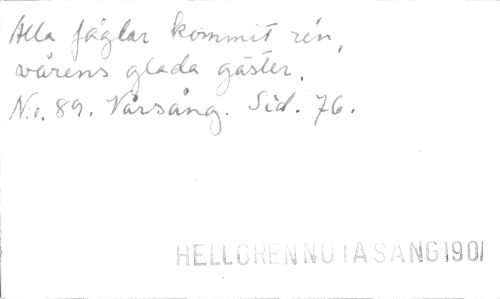 Alla fåglar kommit rén,
vårens glada gäster.
N:o. 89. Vårsång. Sid. 76.
HELLGREN NUIASANG1901